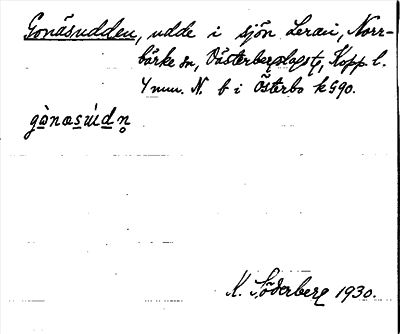 Gonäsudden, udde i sjön Leran, Norr-
bärke sn, Västerbergslags tg, Kopp. l.
4 mm. N. b i Österbo k 590.
gònæsùdn̥
K. Söderberg 1930.